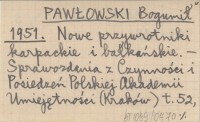 PAWŁOWSKI Bogumił
1951. Nowe przywrotniki
karpackie i bałkańskie. —
Sprawozdania z Czynności i
Posiedzeń Polskiej Akademii
Umiejętności (Kraków) t. 52,